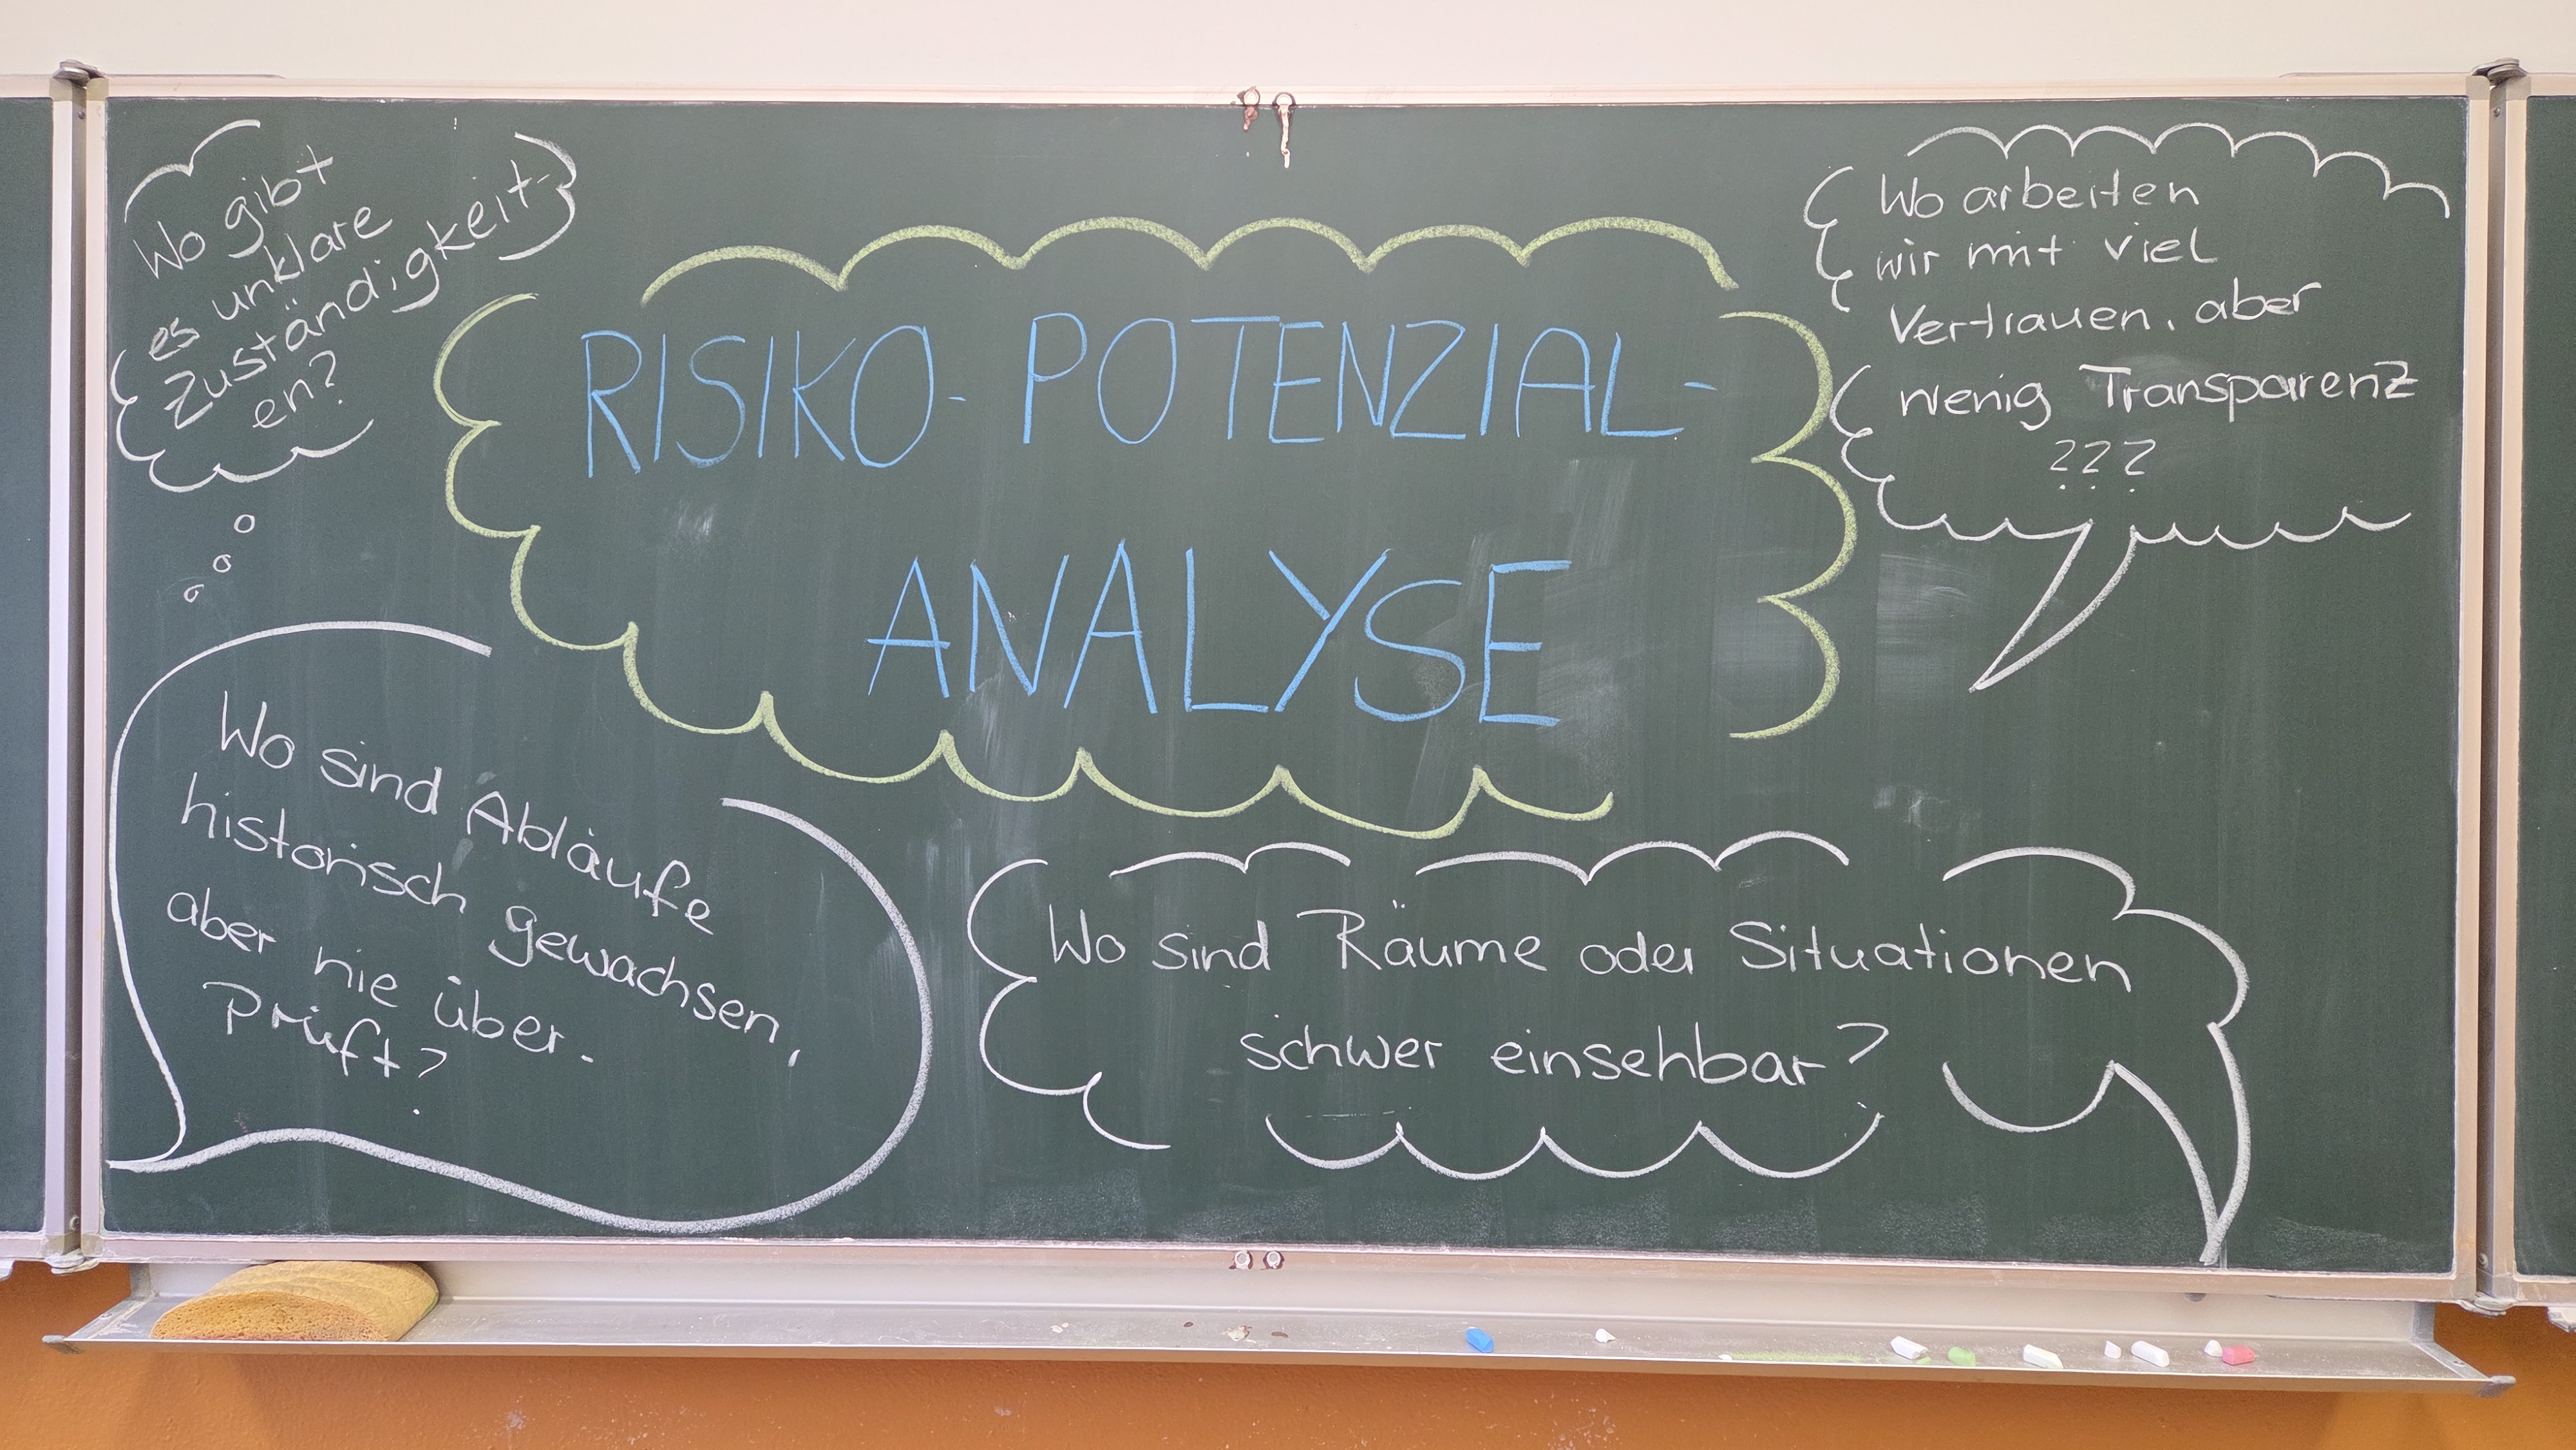 Wo gibt
es unklare
Zuständigkeit-
en?
RISIKO-POTENZIAL-
ANALYSE
Wo arbeiten
wir mit viel
Vertrauen, aber
wenig Transparenz
???
Wo sind Abläufe
historisch gewachsen,
aber nie über-
prüft?
Wo sind Räume oder Situationen
schwer einsehbar?